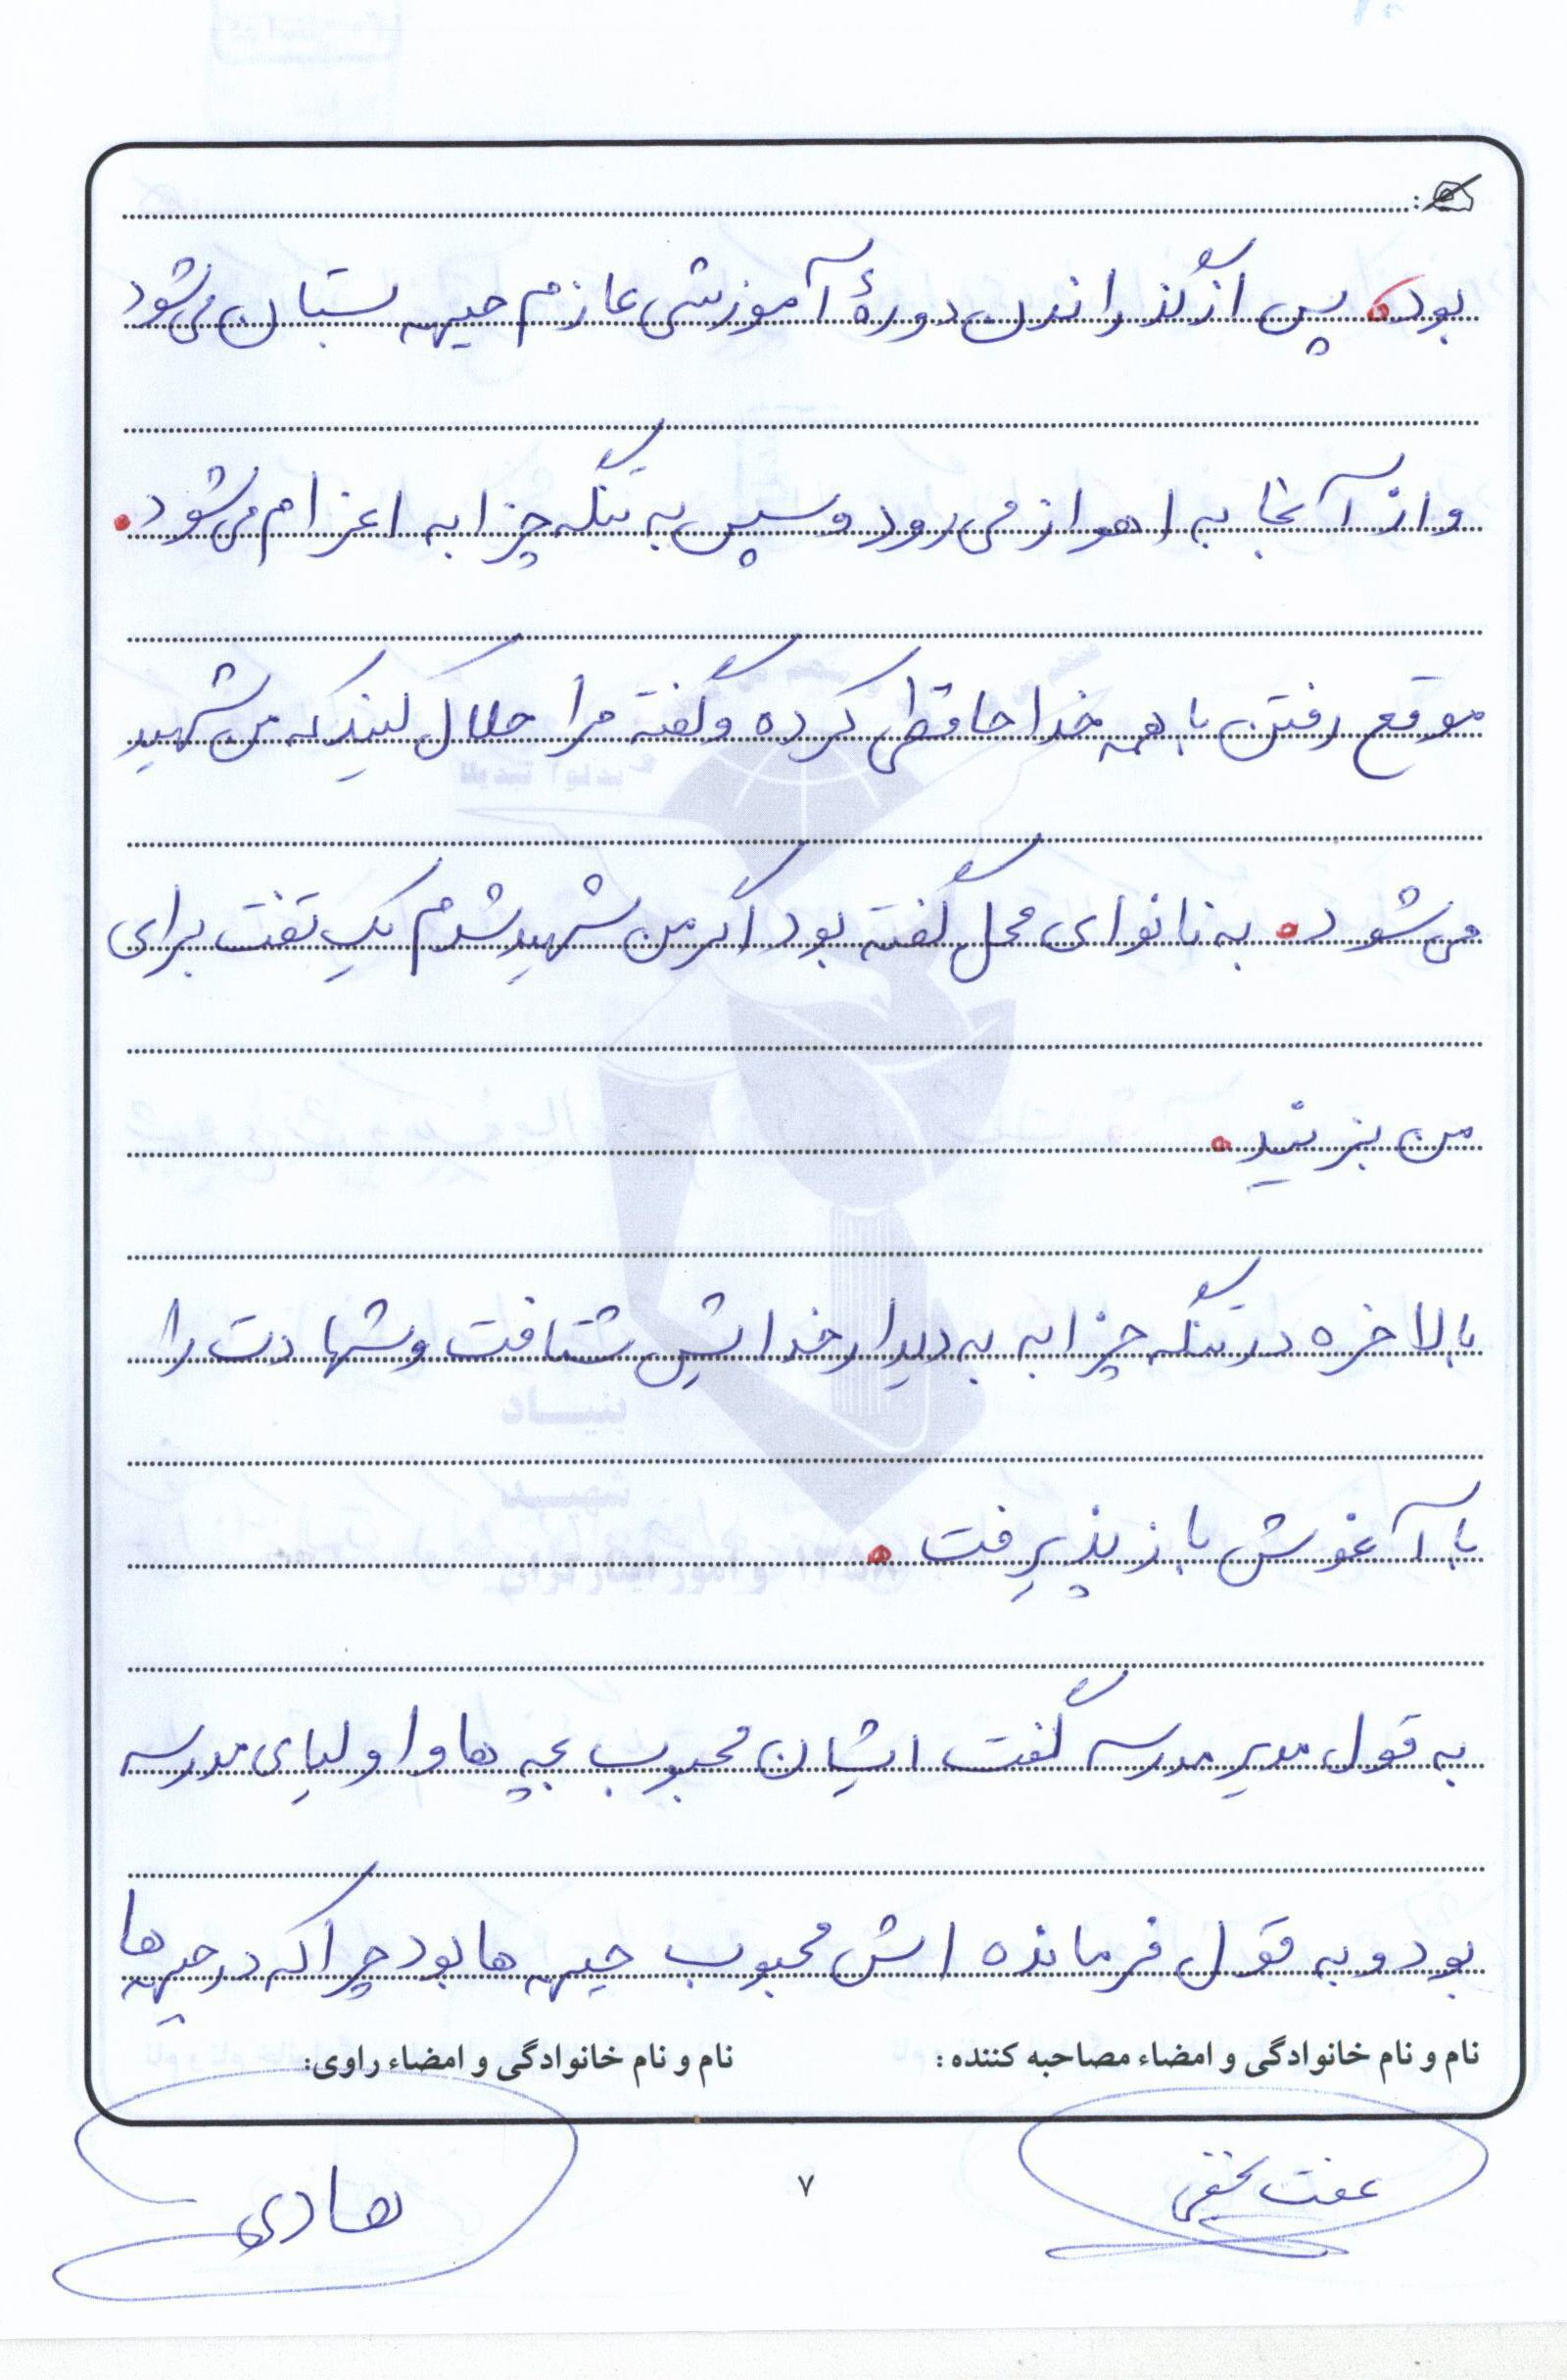 بود. پس از گذراندن دورهٔ آموزشی عازم جبهه بستان می‌شود
و از آنجا به اهواز می‌رود و سپس به تنگه چزابه اعزام می‌شود.
موقع رفتن با همه خداحافظی کرده و گفته مرا حلال کنید که من شهید
می‌شود. به نانوای محل گفته بود اگر من شهید شدم یک تفت برای
من بزنید.
بالاخره در تنگه چزابه به دیدار خدایش شتافت و شهادت را
با آغوش باز پذیرفت.
به قول مدیر مدرسه گفت ایشان محبوب بچه ها و اولیای مدرسه
بود و به قول فرمانده اش محبوب جبهه ها بود چرا که در جبهه ها
نام و نام خانوادگی و امضاء مصاحبه کننده: نام و نام خانوادگی و امضاء راوی:
عفت هادی
۷